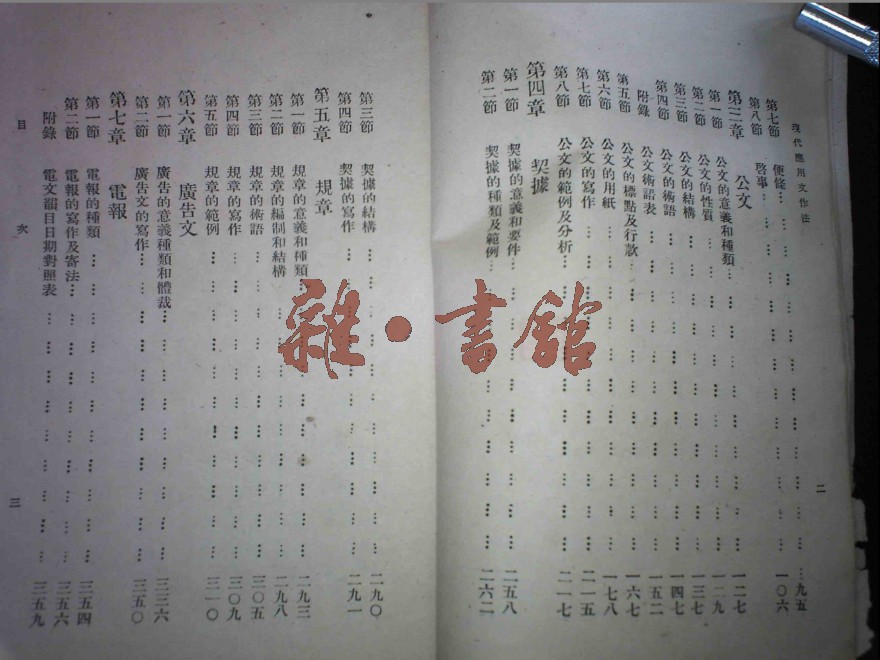 現代應用文作法
二
第七節 便條…………九五
第八節 啓事…………一〇六
第三章 公文
第一節 公文的意義和種類…………一二七
第二節 公文的性質…………一二九
第三節 公文的結構…………一三七
第四節 公文的術語…………一四七
附錄 公文術語表…………一五二
第五節 公文的標點及行款…………一六七
第六節 公文的用紙…………一七八
第七節 公文的寫作…………二一五
第八節 公文的範例及分析…………二一七
第四章 契據
第一節 契據的意義和要件…………二五八
第二節 契據的種類及範例…………二六二
第三節 契據的結構…………二九〇
第四節 契據的寫作…………二九一
第五章 規章
第一節 規章的意義和種類…………二九三
第二節 規章的編制和結構…………二九八
第三節 規章的術語…………三〇五
第四節 規章的寫作…………三〇九
第五節 規章的範例…………三一〇
第六章 廣告文
第一節 廣告的意義種類和體裁…………三三六
第二節 廣告文的寫作…………三五〇
第七章 電報
第一節 電報的種類…………三五四
第二節 電報的寫作及寄法…………三五六
附錄 電文韻目日期對照表…………三五九
目次
三
雜·書館